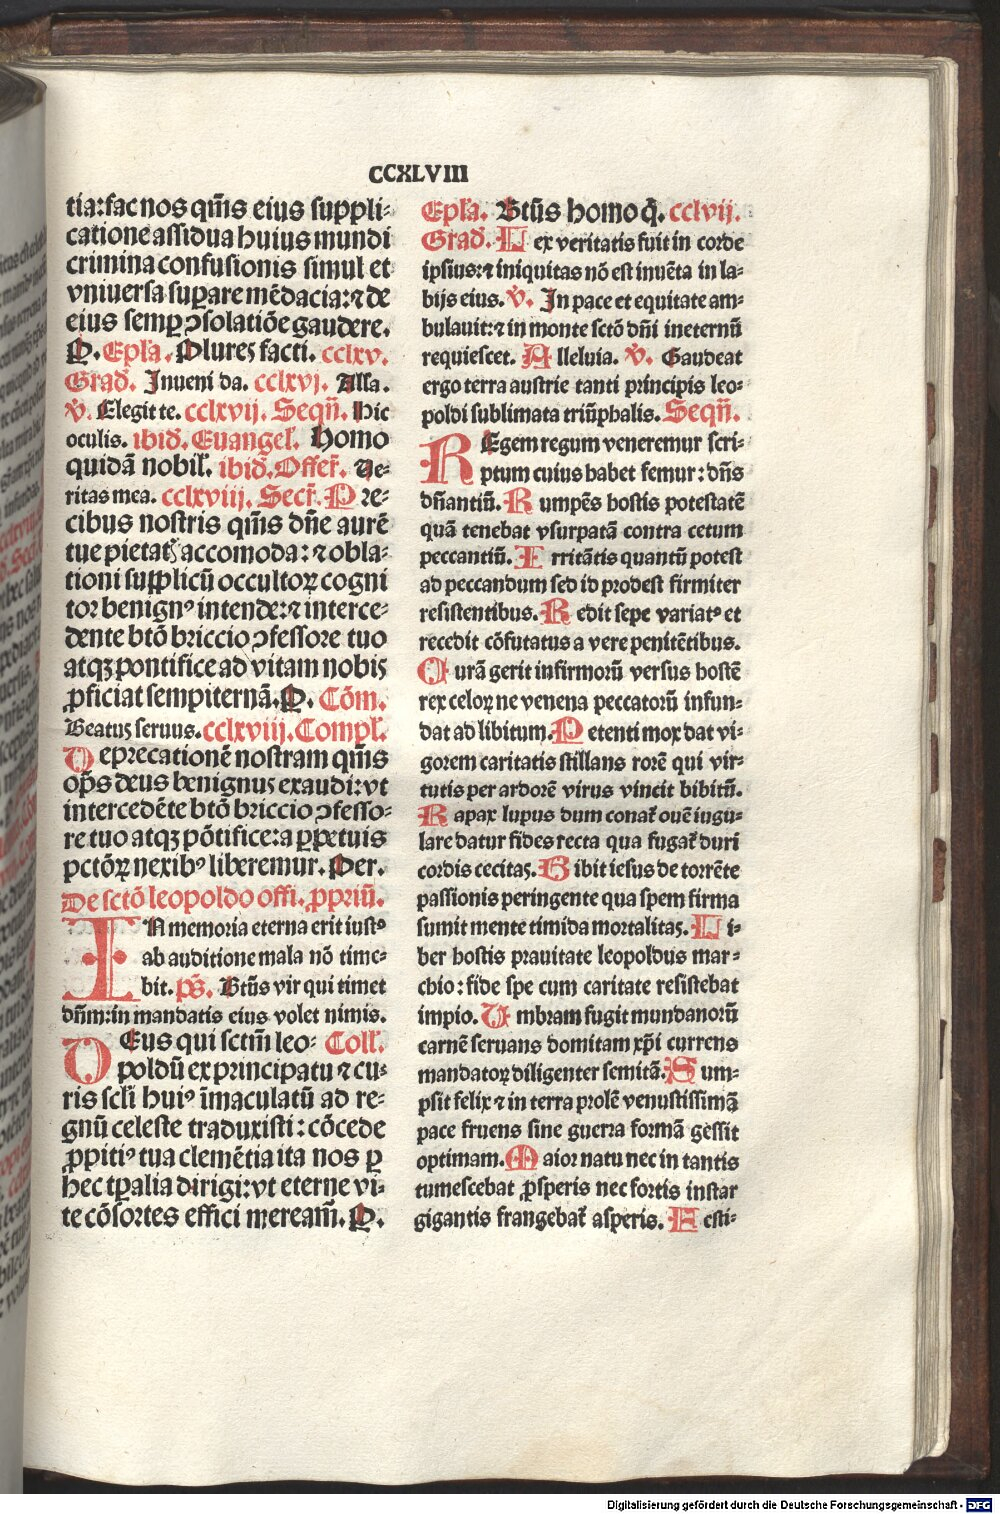 CCXLVIII
tia: fac nos qm̄s eius suppli-
catione assidua huius mundi
crimina confusionis simul et
vniuersa suꝑare mēdacia: ⁊ de
eius semꝑ ꝯsolatiōe gaudere.
P. Epl'a. Plures facti. cclxv.
Grad̄. Inueni da. cclxvj. Alla.
v̄. Elegit te. cclxvij. Seqn̄. Hic
oculis. ibid̄. Euangel'. Homo
quidā nobil'. ibid̄. Offer̄. Ve-
ritas mea. cclxviij. Secr̄. Pre-
cibus nostris qm̄s dn̄e aurē
tue pietatꝭ accomoda: ⁊ obla-
tioni supplicū occultoꝝ cogni
tor benignꝰ intende: ⁊ interce-
dente btō briccio ꝯfessore tuo
atqꝫ pontifice ad vitam nobis
ꝓficiat sempiternā. P. Cōm.
Beatus seruus. cclxviij. Compl'.
Deprecationē nostram qm̄s
op̄s deus benignus exaudi: vt
intercedēte btō briccio ꝯfesso-
re tuo atqꝫ pōtifice: a ꝑpetuis
pctōꝝ nexibꝰ liberemur. Per.
De sctō leopoldo offi. ꝓpriū.
IN memoria eterna erit iustꝰ
ab auditione mala nō time-
bit. ps̄. Btūs vir qui timet
dn̄m: in mandatis eius volet nimis.
DEus qui sctm̄ leo- Coll'.
poldū ex principatu ⁊ cu-
ris scl'i huiꝰ īmaculatū ad re-
gnū celeste traduxisti: cōcede
ꝓpitiꝰ tua clemētia ita nos ꝑ
hec tꝑalia dirigi: vt eterne vi-
te cōsortes effici meream̄. P.
Epl'a. Btūs homo q̄. cclvij.
Grad̄. Lex veritatis fuit in corde
ipsius: ⁊ iniquitas nō est inuēta in la-
bijs eius. v̄. In pace et equitate am-
bulauit: ⁊ in monte sctō dn̄i ineternū
requiescet. Alleluia. v̄. Gaudeat
ergo terra austrie tanti principis leo-
poldi sublimata triūphalis. Seqn̄.
REgem regum veneremur scri-
ptum cuius habet femur: dn̄s
dn̄antiū. Rumpēs hostis potestatē
quā tenebat vsurpatā contra cetum
peccantiū. Irritātis quantū potest
ad peccandum sed id prodest firmiter
resistentibus. Redit sepe variatꝰ et
recedit cōfutatus a vere penitētibus.
Curā gerit infirmorū versus hostē
rex celoꝝ ne venena peccatorū infun-
dat ad libitum. Petenti mox dat vi-
gorem caritatis stillans rorē qui vir-
tutis per ardorē virus vincit bibitū.
Rapax lupus dum conat̄ ouē iugu-
lare datur fides recta qua fugat̄ duri
cordis cecitas. Bibit iesus de torrēte
passionis peringente qua spem firma
sumit mente timida mortalitas. Li-
ber hostis prauitate leopoldus mar-
chio: fide spe cum caritate resistebat
impio. Vmbram fugit mundanorū
carnē seruans domitam xp̄i currens
mandatoꝝ diligenter semitā. Sum-
psit felix ⁊ in terra prolē venustissimā
pace fruens sine guerra formā gessit
optimam. Maior natu nec in tantis
tumescebat ꝓsperis nec fortis instar
gigantis frangebat̄ asperis. Festi-
Digitalisierung gefördert durch die Deutsche Forschungsgemeinschaft - DFG